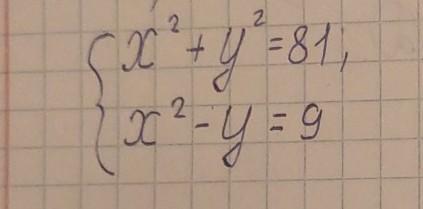 x² + y² = 81;
x² - y = 9